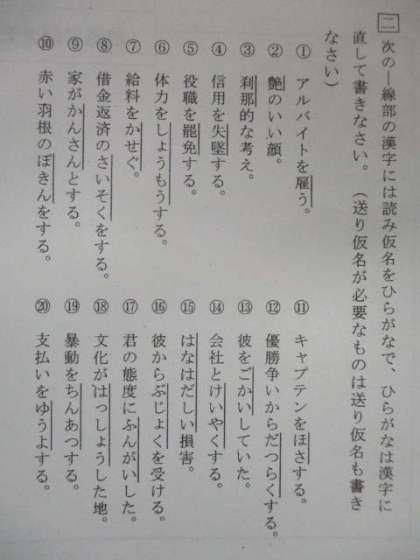 二 次の―線部の漢字には読み仮名をひらがなで、ひらがなは漢字に
直して書きなさい。（送り仮名が必要なものは送り仮名も書き
なさい）
① アルバイトを雇う。
② 艶のいい顔。
③ 刹那的な考え。
④ 信用を失墜する。
⑤ 役職を罷免する。
⑥ 体力をしょうもうする。
⑦ 給料をかせぐ。
⑧ 借金返済のさいそくをする。
⑨ 家がかんさんとする。
⑩ 赤い羽根のぼきんをする。
⑪ キャプテンをほさする。
⑫ 優勝争いからだつらくする。
⑬ 彼をごかいしていた。
⑭ 会社とけいやくする。
⑮ はなはだしい損害。
⑯ 彼からぶじょくを受ける。
⑰ 君の態度にふんがいした。
⑱ 文化がはっしょうした地。
⑲ 暴動をちんあつする。
⑳ 支払いをゆうよする。